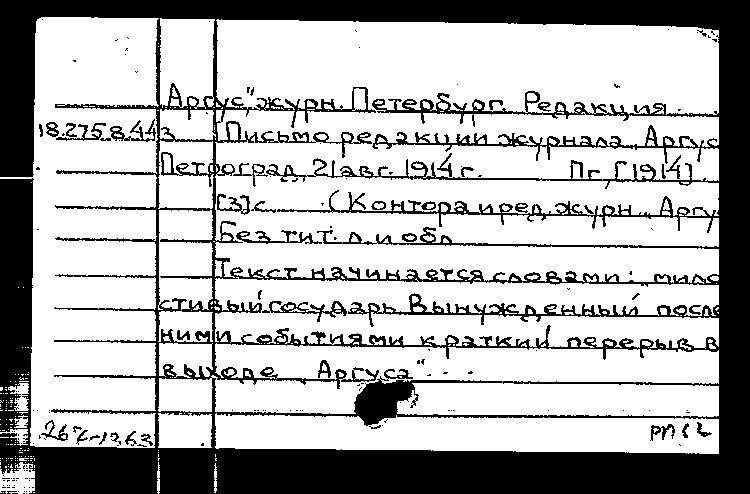 Аргус", журн. Петербург. Редакция.
18.275.8.443 [Письмо редакции журнала „Аргус
Петроград, 21 авг. 1914 г. Пг, [1914].
[3] с. (Контора и ред. журн. „Аргу
Без тит. л. и обл
Текст начинается словами: „мило
стивый государь Вынужденный после
ними событиями краткий перерыв в
выходе „Аргуса"...